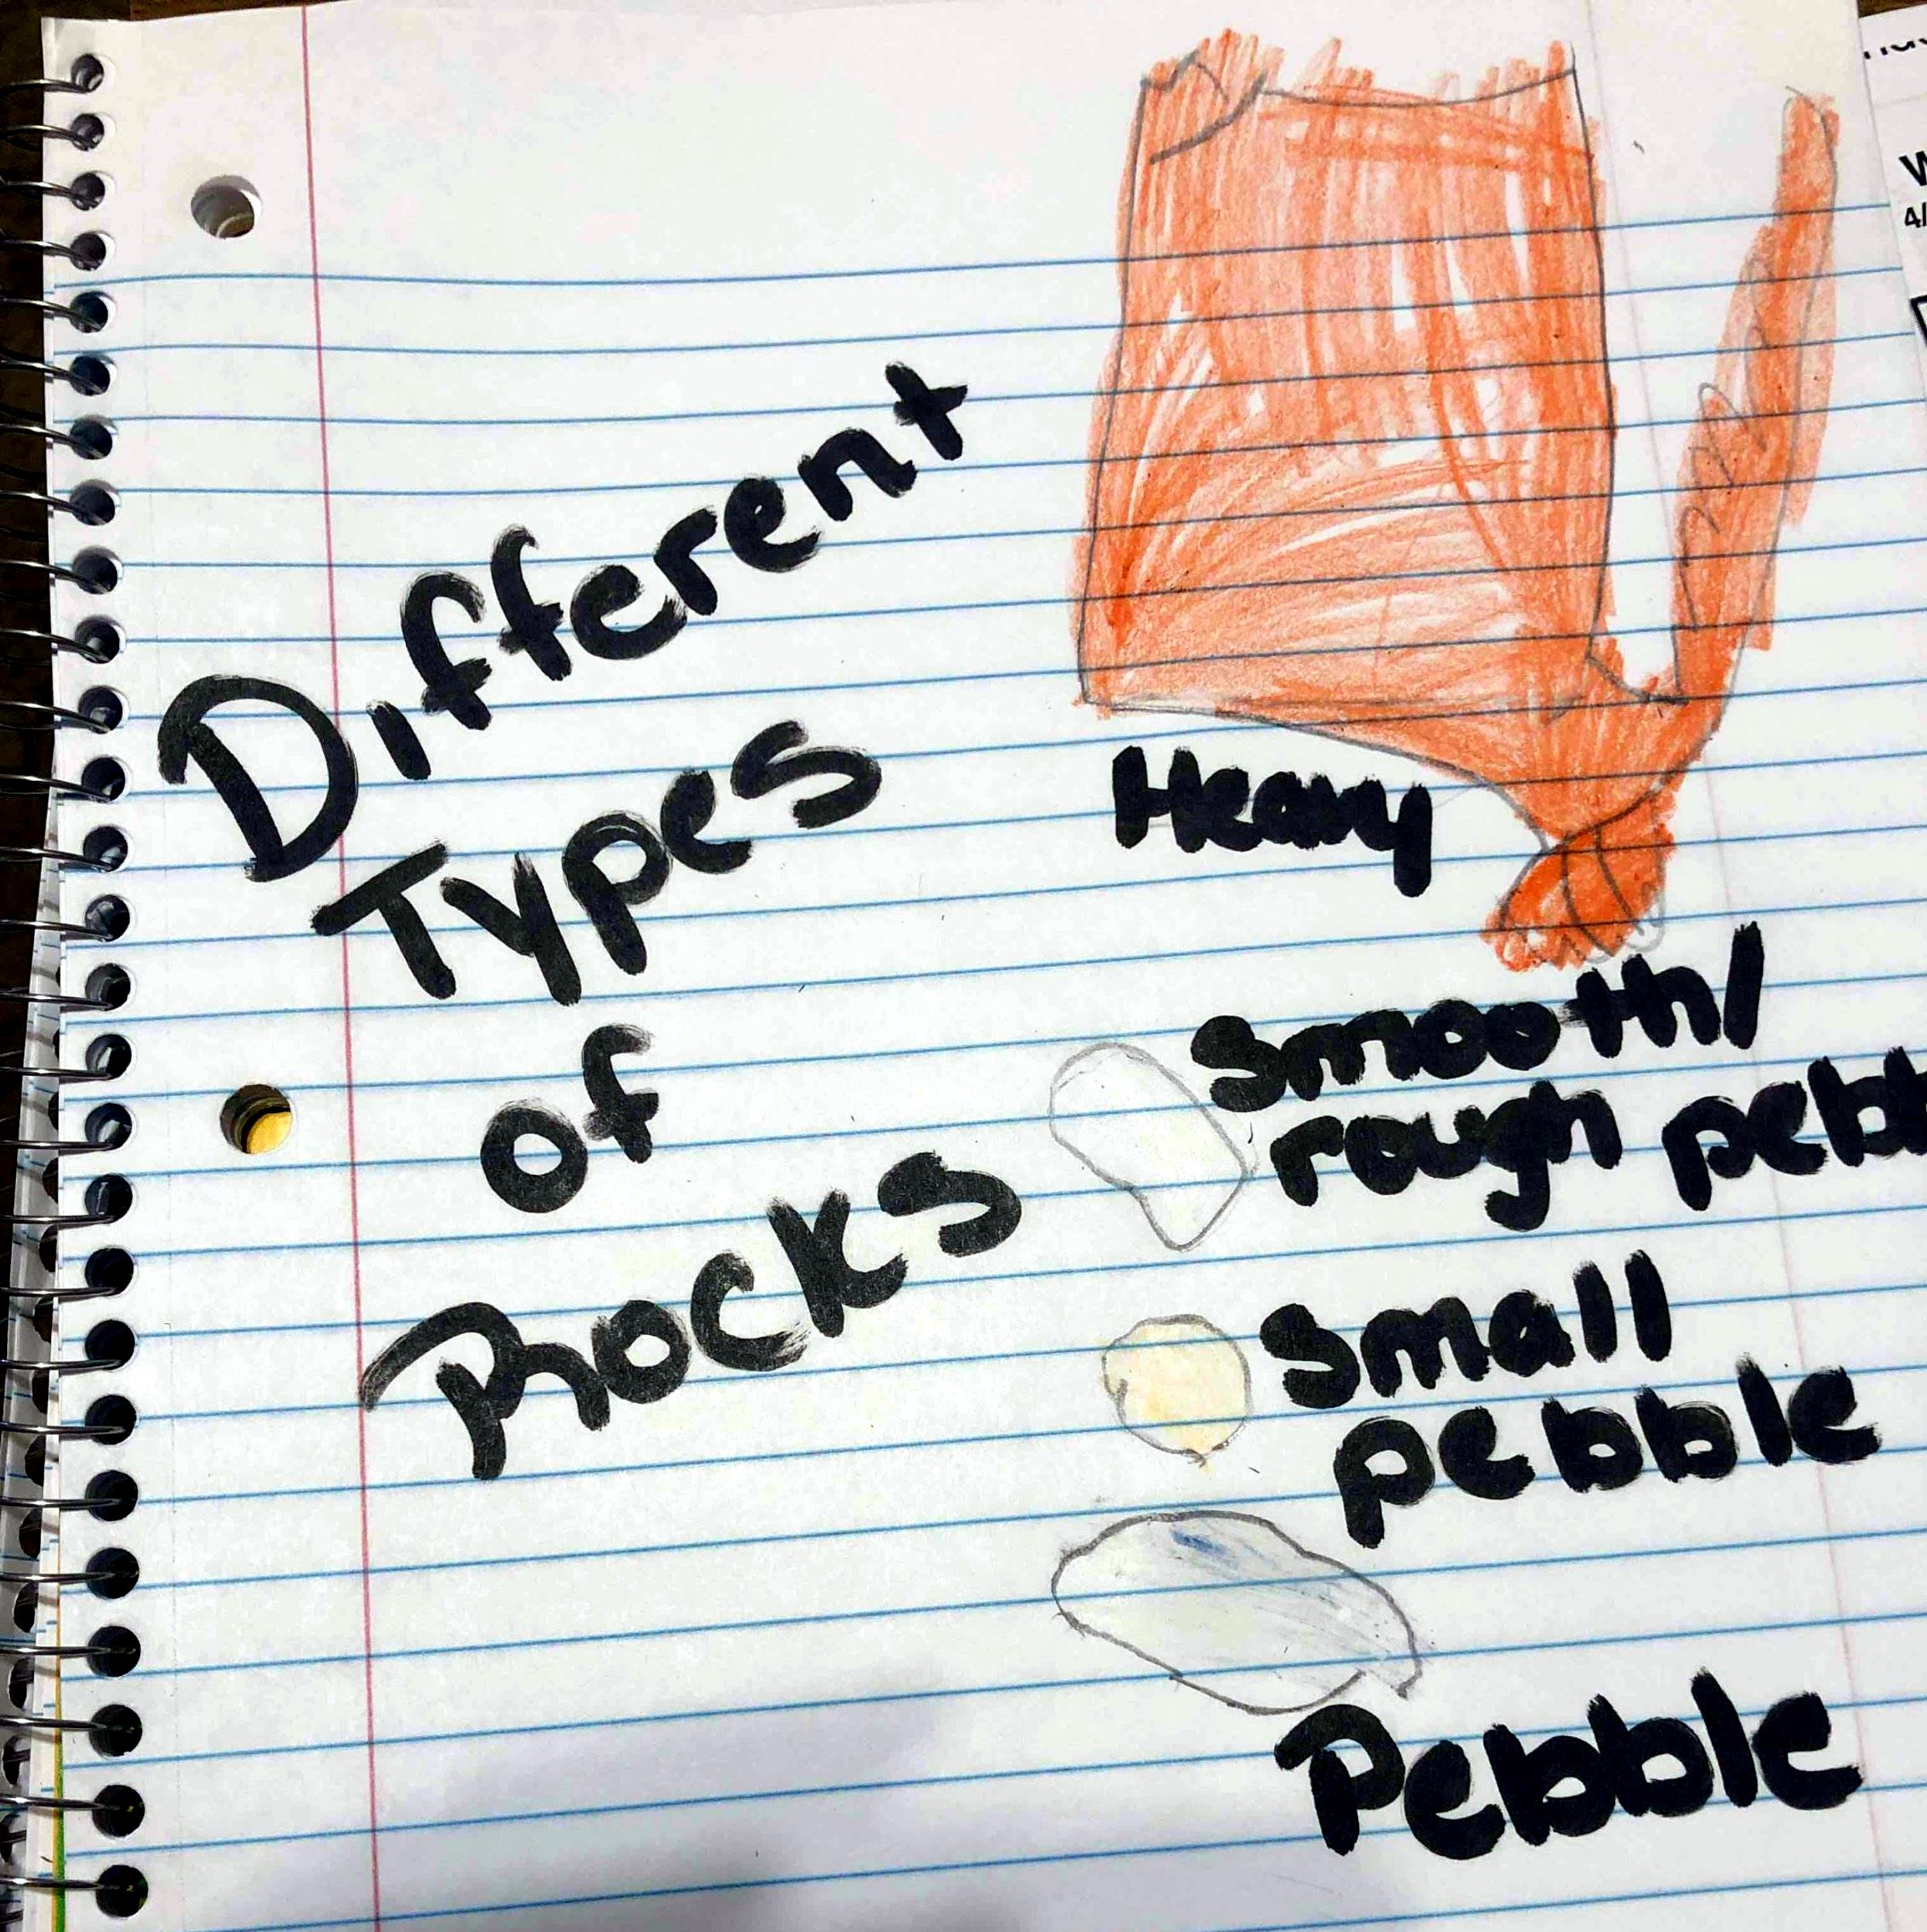 Different
Types
of
Rocks
Heavy
Smooth/
rough pebb
Small
pebble
Pebble
W
4/